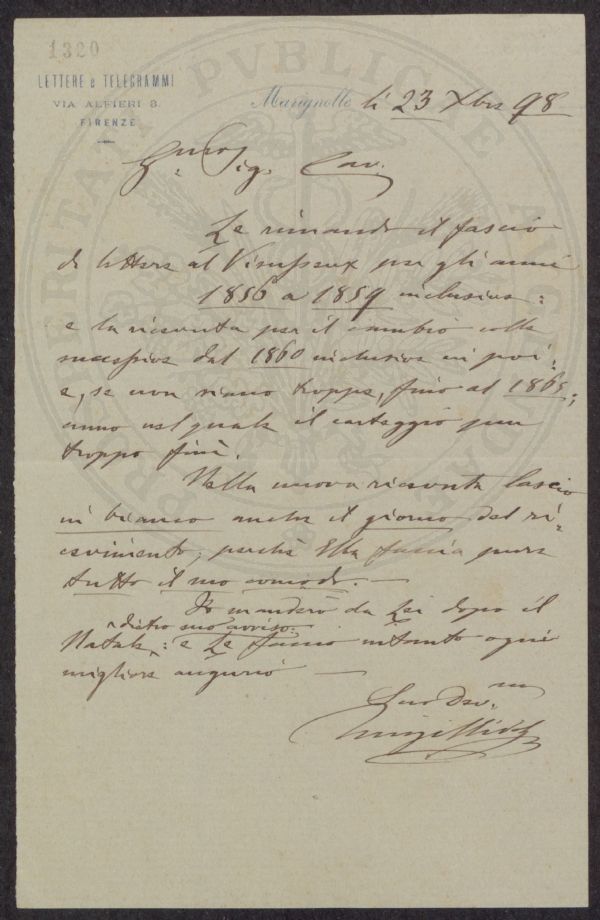 1320
LETTERE e TELEGRAMMI
VIA ALFIERI 8.
FIRENZE
Marignolle li 23 Xbre 98
Sig. Cav.
Le rimando il fascio
di lettere al Vieusseux per gli anni
1856 a 1859 inclusive:
e la ricevuta per il cambio colle
successive dal 1860 inclusive in poi;
e, se non siano troppe, fino al 1865;
anno nel quale il carteggio pur
troppo finì.
Nella nuova ricevuta lascio
in bianco anche il giorno del ri-
cevimento; perchè Ella faccia pure
tutto il suo comodo.—
Io manderò da Lei dopo il
dietro suo avviso:
Natale: e Le faccio intanto ogni
migliore augurio —
Suo Dev.mo